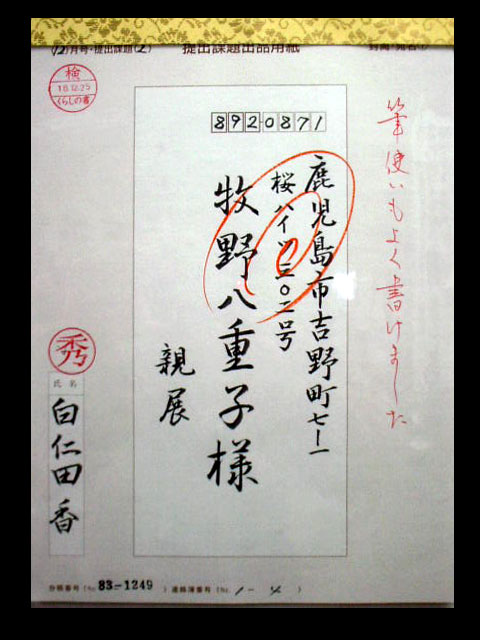 12月号・提出課題(2)
提出課題出品用紙
検
18.12.25
くらしの書
8920871
筆使いもよく書けました
鹿児島市吉野町七ー一
桜ハイツ三〇二号
牧野八重子様
親展
秀
氏名
白仁田香
83-1249